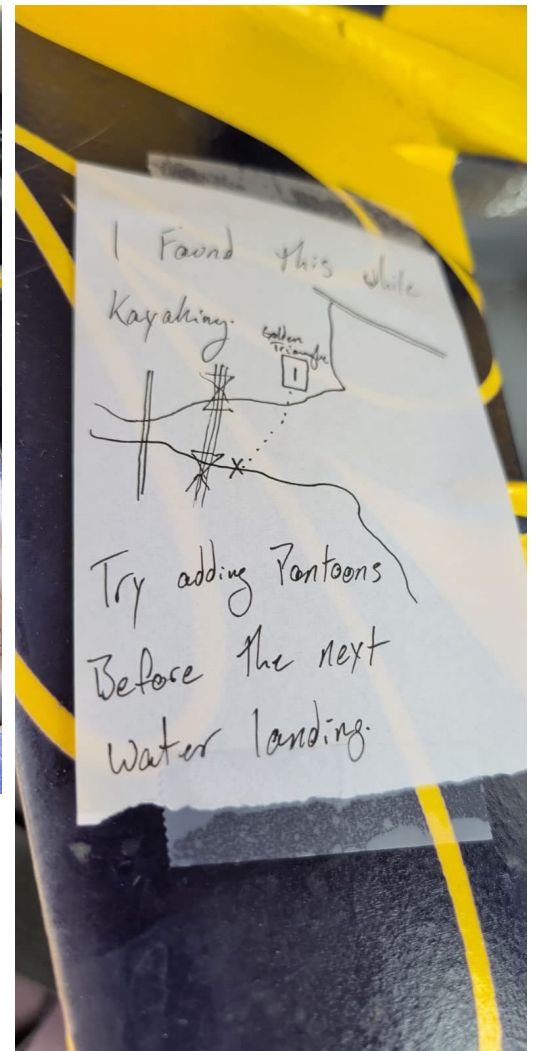 I Found this while
Kayaking.
Golden
Triangle
1
X
Try adding Pontoons
Before the next
water landing.